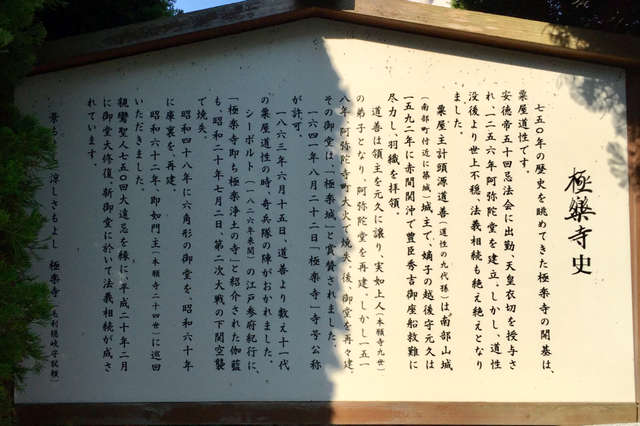 極樂寺史
七五〇年の歴史を眺めてきた極樂寺の開基は、
粟屋道性です。
安徳帝五十回忌法会に出勤、天皇衣切を授与さ
れ、一二五六年阿弥陀堂を建立。しかし、道性
没後より世上不穏、法義相続も絶え絶えとなり
ました。
粟屋主計頭源道善(道性の九代孫)は、南部山城
(南部町付近に築城)城主で、嫡子の越後守元久は
一五九二年に赤間関沖で豊臣秀吉御座船救難に
尽力し、羽織を拝領。
道善は領主を元久に譲り、実如上人(本願寺九世)
の弟子となり、阿弥陀堂を再建。しかし一五一
八年阿弥陀寺町大火で焼失。後、御堂を再々建。
その御堂は、「極楽城」と賞賛されました。
一六四一年八月二十二日「極樂寺」寺号公称
が許可。
一八六三年六月十五日、道善より数え十一代
の粟屋道性の時、奇兵隊の陣がおかれました。
シーボルト(一八二六年来関)の江戸参府紀行に、
「極樂寺即ち極樂浄土の寺」と紹介された伽藍
も、昭和二十年七月二日、第二次大戦の下関空襲
で焼失。
昭和四十八年に六角形の御堂を、昭和六十年
に庫裏を再建。
昭和六十二年、即如門主(本願寺二十四世)に巡回
いただきました。
親鸞聖人七五〇回大遠忌を縁に、平成二十年二月
に御堂大修復。新御堂に於いて法義相続が成さ
れています。
景もよし 涼しさもよし 極樂寺 (毛利讃岐守放種)